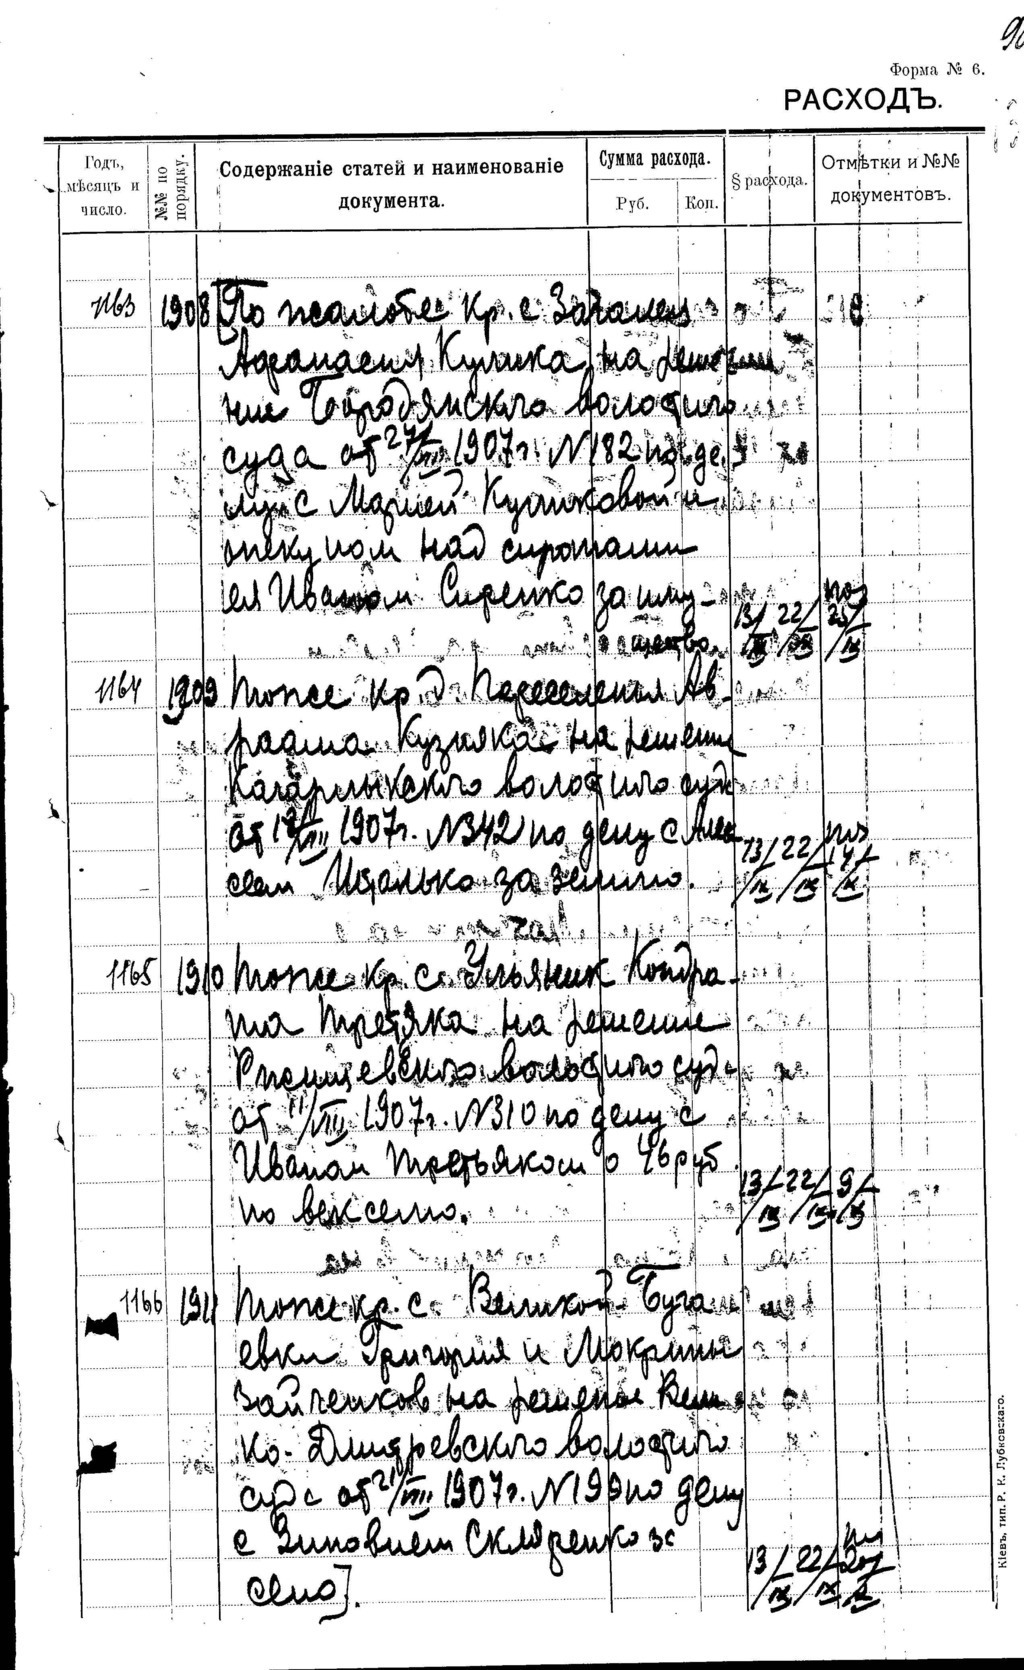 Форма № 6.
РАСХОДЪ.
Годъ, мѣсяцъ и число.
№№ по порядку.
Содержаніе статей и наименованіе документа.
Сумма расхода.
Руб. Коп.
§ расхода.
Отмѣтки и №№ документовъ.
1163 1908 [По жалобе кр. с
Афанасия Кулика на решение
Бородянского волостного
суда от 27/VIII 1907 г. N 182 по де
лу с Марией Куликовой и
опекуном над сиротами
ея Иваном Сиренко за иму-
щество. 13/IX 22/IX 25/IX
1164 1909 Тоже кр. д. Переселения Ав-
раама Кузняка на решение
Кагарлыкского волостного суда
от /VIII 1907 г. N 342 по делу с Алек
сеем за землю. 13/IX 22/IX
1165 1910 Тоже кр. с. Ульяник Кондра-
та Третяка на решение
Ржищевского волостного суда
от 11/VIII 1907 г. N 310 по делу с
Иваном Третьяком о 46 руб.
по векселю. 13/IX 22/IX 9/X
1166 1911 Тоже кр. с. Великой Буга
евки Григория и Мокрины
Зайченков на решение Вели
ко-Дмитревского волостного
суда от 21/VIII 1907 г. N 199 по делу
с Зиновием Скляренко за
сено]. 13/IX 22/IX
Кіевъ, тип. Р. К. Лубковскаго.